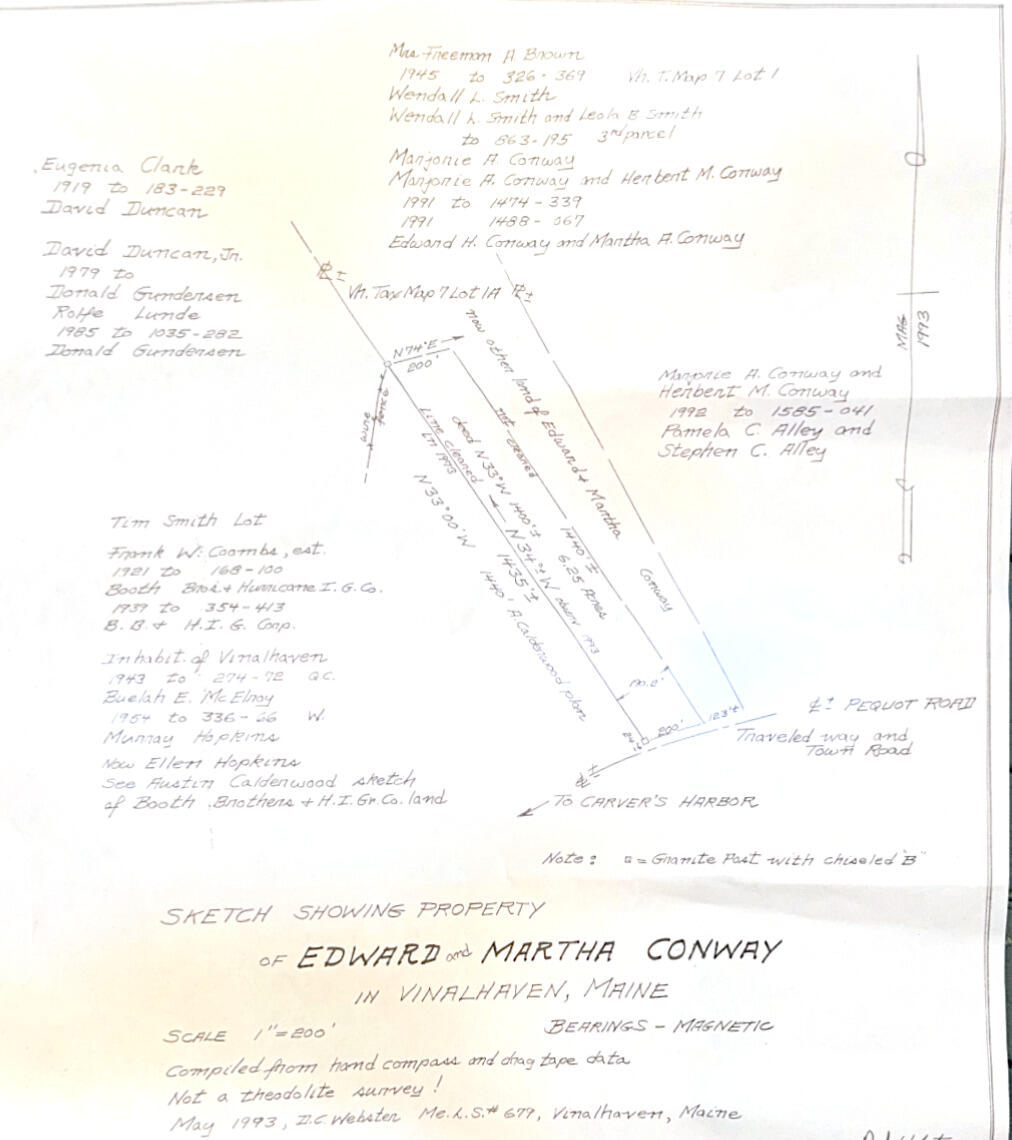 Mrs Freeman A Brown
1945 to 326-369 Vh. T. Map 7 Lot 1
Wendall L. Smith
Wendall L. Smith and Leola B Smith
to 863-195 3rd parcel
Marjorie A. Conway
Marjorie A. Conway and Herbert M. Conway
1991 to 1474-339
1991 1488-067
Edward H. Conway and Martha A. Conway
Eugenia Clark
1919 to 183-229
David Duncan
David Duncan, Jr.
1979 to
Donald Gundersen
Rolfe Lunde
1985 to 1035-282
Donald Gundersen
Vh. Tax Map 7 Lot 1A
MAG 1993
N74°E
200'
wire fence
now other land of Edward & Martha Conway
not cleared
Line cleared in 1993
deed N33°W 1400'±
N34°±W 1993
1435'±
N33°00'W 1440' A. Calderwood plan
1440'±
6.25 Acres
190.2'
24'±
200'
123'±
Marjorie A. Conway and
Herbert M. Conway
1992 to 1585-041
Pamela C. Alley and
Stephen C. Alley
Tim Smith Lot
Frank W. Coombs, est.
1921 to 168-100
Booth Bros & Hurricane I. G. Co.
1939 to 354-413
B. B. & H. I. G. Corp.
Inhabit. of Vinalhaven
1943 to 274-72 Q.C.
Buelah E. McElroy
1954 to 336-66 W.
Murray Hopkins
Now Ellen Hopkins
See Austin Calderwood sketch
of Booth Brothers & H. I. Gr. Co. land
℄± PEQUOT ROAD
Traveled way and
Town Road
TO CARVER'S HARBOR
Note: □ = Granite Post with chiseled "B"
SKETCH SHOWING PROPERTY
OF EDWARD and MARTHA CONWAY
IN VINALHAVEN, MAINE
SCALE 1"=200' BEARINGS - MAGNETIC
Compiled from hand compass and drag tape data
Not a theodolite survey!
May 1993, D.C. Webster Me. L.S.# 679, Vinalhaven, Maine